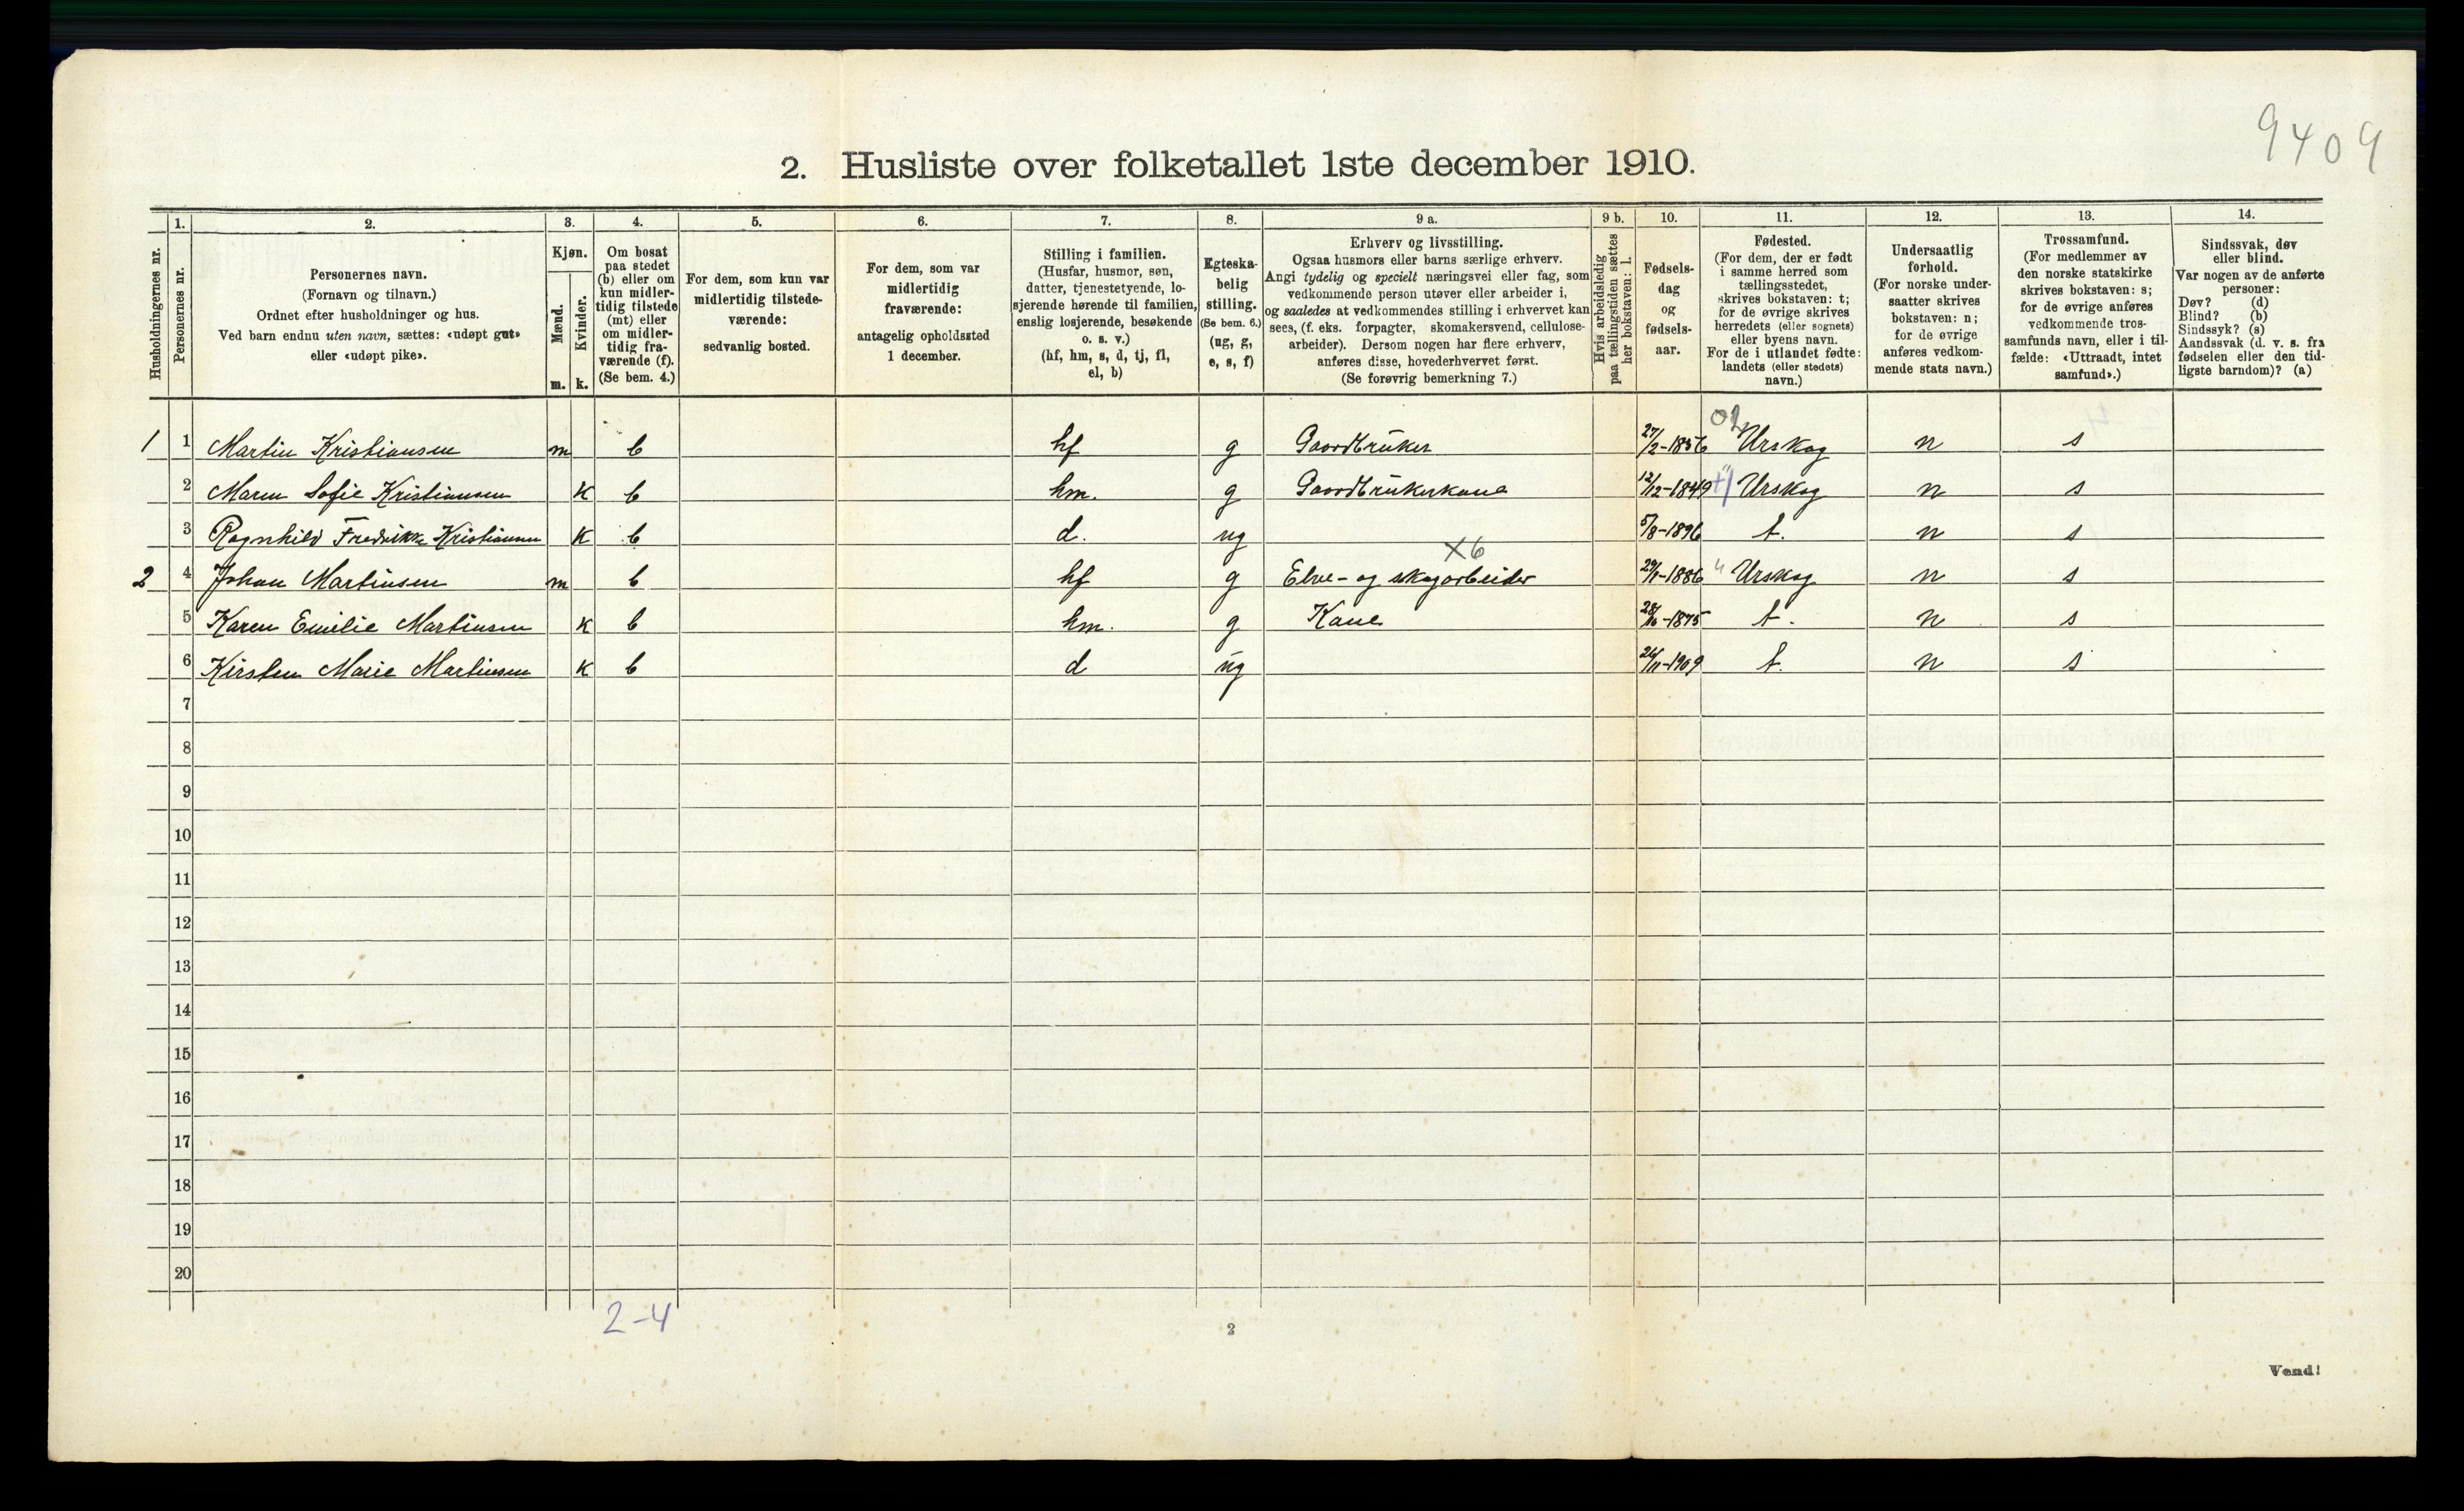 9409
2. Husliste over folketallet 1ste december 1910.
Husholdningernes nr.
1.
Personernes nr.
2.
Personernes navn.
(Fornavn og tilnavn.)
Ordnet efter husholdninger og hus.
Ved barn endnu uten navn, sættes: «udøpt gut»
eller «udøpt pike».
3.
Kjøn.
Mænd.
Kvinder.
m. k.
4.
Om bosat
paa stedet
(b) eller om
kun midler-
tidig tilstede
(mt) eller
om midler-
tidig fra-
værende (f).
(Se bem. 4.)
5.
For dem, som kun var
midlertidig tilstede-
værende:
sedvanlig bosted.
6.
For dem, som var
midlertidig
fraværende:
antagelig opholdssted
1 december.
7.
Stilling i familien.
(Husfar, husmor, søn,
datter, tjenestetyende, lo-
sjerende hørende til familien,
enslig losjerende, besøkende
o. s. v.)
(hf, hm, s, d, tj, fl,
el, b)
8.
Egteska-
belig
stilling.
(Se bem. 6.)
(ug, g,
e, s, f)
9 a.
Erhverv og livsstilling.
Ogsaa husmors eller barns særlige erhverv.
Angi tydelig og specielt næringsvei eller fag, som
vedkommende person utøver eller arbeider i,
og saaledes at vedkommendes stilling i erhvervet kan
sees, (f. eks. forpagter, skomakersvend, cellulose-
arbeider). Dersom nogen har flere erhverv,
anføres disse, hovederhvervet først.
(Se forøvrig bemerkning 7.)
9 b.
Hvis arbeidsledig
paa tællingstiden sættes
her bokstaven: l.
10.
Fødsels-
dag
og
fødsels-
aar.
11.
Fødested.
(For dem, der er født
i samme herred som
tællingsstedet,
skrives bokstaven: t;
for de øvrige skrives
herredets (eller sognets)
eller byens navn.
For de i utlandet fødte:
landets (eller stedets)
navn.)
12.
Undersaatlig
forhold.
(For norske under-
saatter skrives
bokstaven: n;
for de øvrige
anføres vedkom-
mende stats navn.)
13.
Trossamfund.
(For medlemmer av
den norske statskirke
skrives bokstaven: s;
for de øvrige anføres
vedkommende tros-
samfunds navn, eller i til-
fælde: «Uttraadt, intet
samfund».)
14.
Sindssvak, døv
eller blind.
Var nogen av de anførte
personer:
Døv? (d)
Blind? (b)
Sindssyk? (s)
Aandssvak (d. v. s. fra
fødselen eller den tid-
ligste barndom)? (a)
02
1 1 Martin Kristiansen m b hf g Gaardbruker 27/2-1856 Urskog n s
2 Maren Sofie Kristiansen k b hm. g Gaardbrukerkone 12/12-1849 Urskog n s
3 Ragnhild Fredrikke Kristiansen k b d. ug 5/8-1896 t. n s
X6
2 4 Johan Martinsen m b hf g Elve- og skogarbeider 29/1-1886 " Urskog n s
5 Karen Emilie Martinsen k b hm. g Kone 1875 t. n s
6 Kirsten Marie Martinsen k b d ug 26/11-1909 t. n s
7
8
9
10
11
12
13
14
15
16
17
18
19
20
2-4
2
Vend!